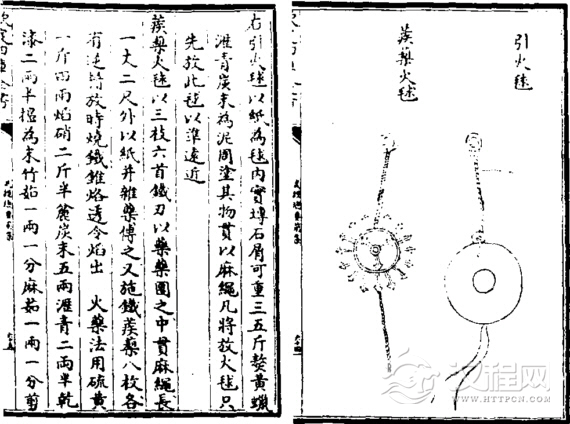 引火毬
蒺藜火毬
右引火毬以紙為毬内實塼石屑可重三五斤熬黃蠟
瀝青炭末為泥周塗其物貫以麻繩凡將放火毬只
先放此毬以準遠近
蒺藜火毬以三枝六首鐵刃以藥藥團之中貫麻繩長
一丈二尺外以紙并雜藥傅之又施鐵蒺藜八枚各
有逆鬚放時燒鐵錐烙透令焰出 火藥法用硫黃
一斤四兩焰硝二斤半麄炭末五兩瀝青二兩半乾
漆二兩半搗為末竹茹一兩一分麻茹一兩一分剪
汉程网
http://www.httpcn.com